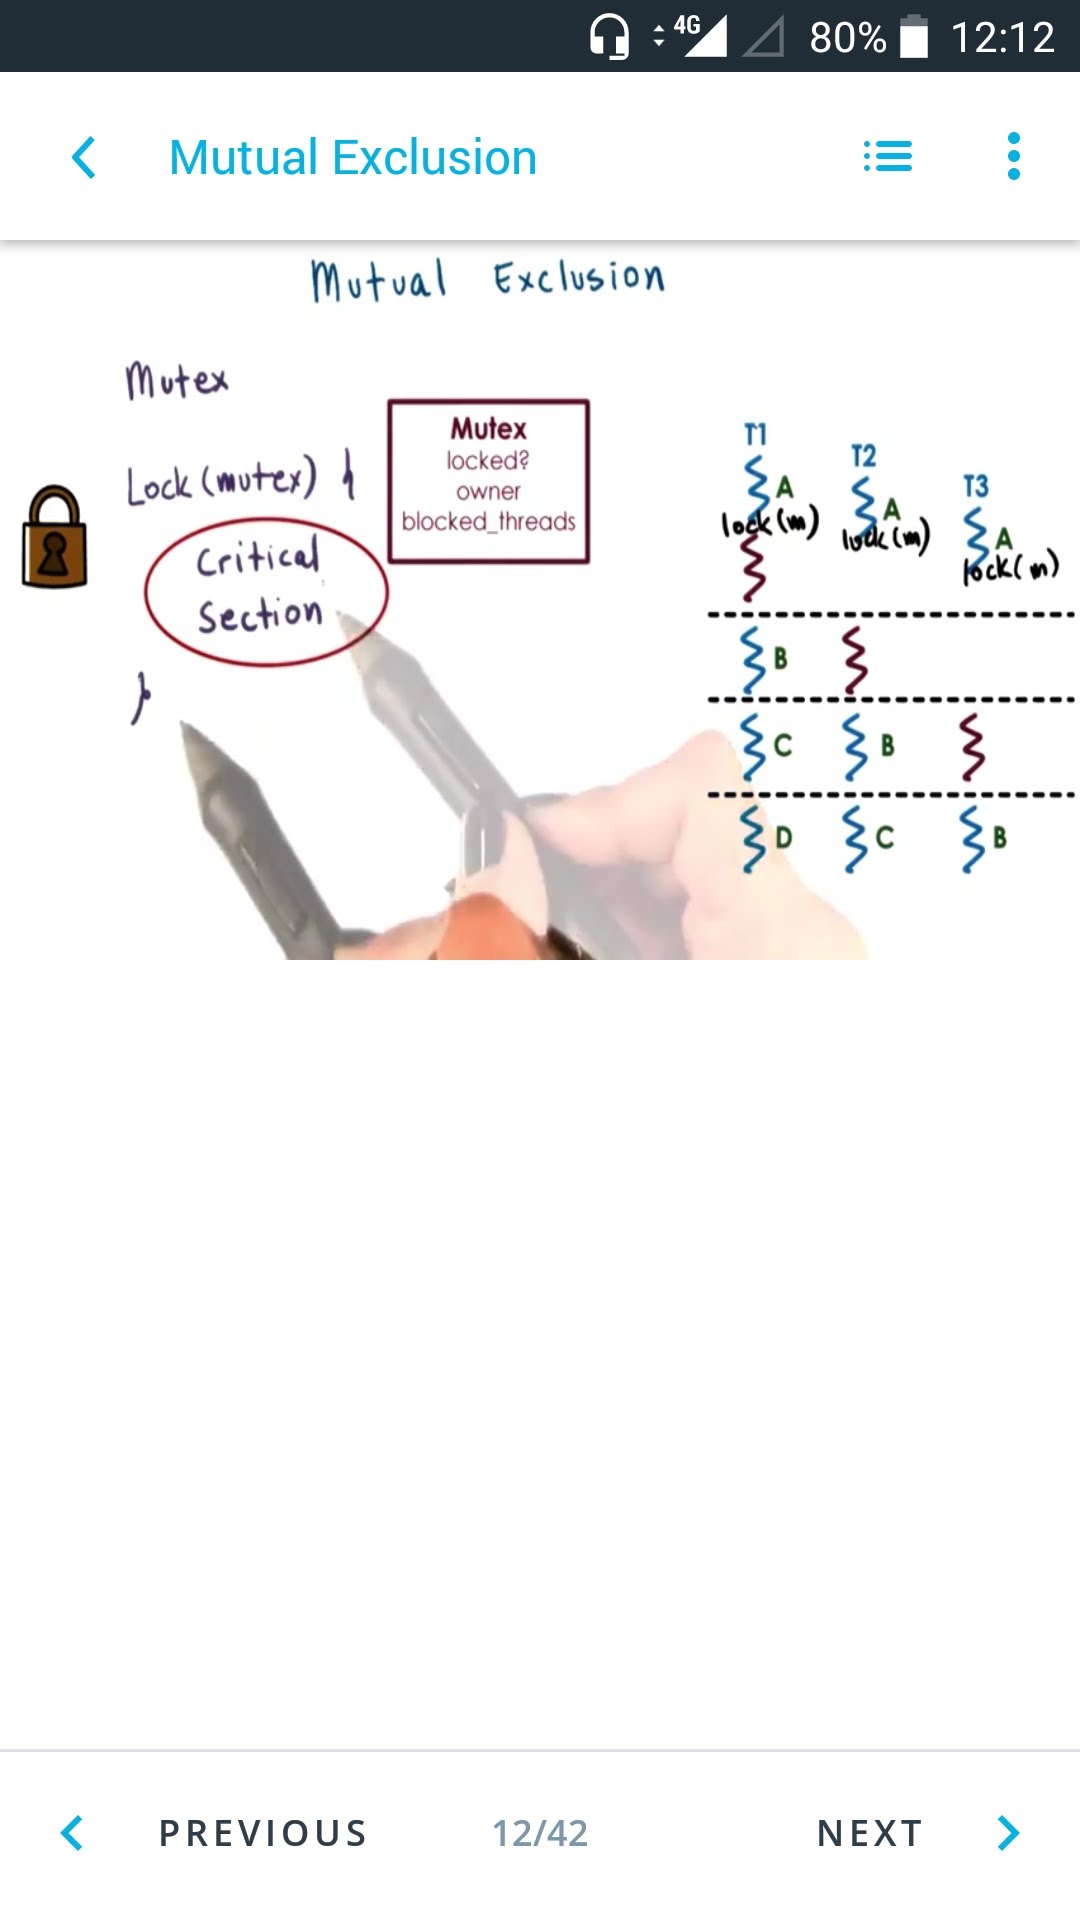 4G 80% 12:12
Mutual Exclusion
Mutual Exclusion
Mutex
Lock (mutex) {
Critical
Section
}
Mutex
locked?
owner
blocked_threads
T1
A
lock(m)
T2
A
lock(m)
T3
A
lock(m)
B
C B
D C B
PREVIOUS 12/42 NEXT